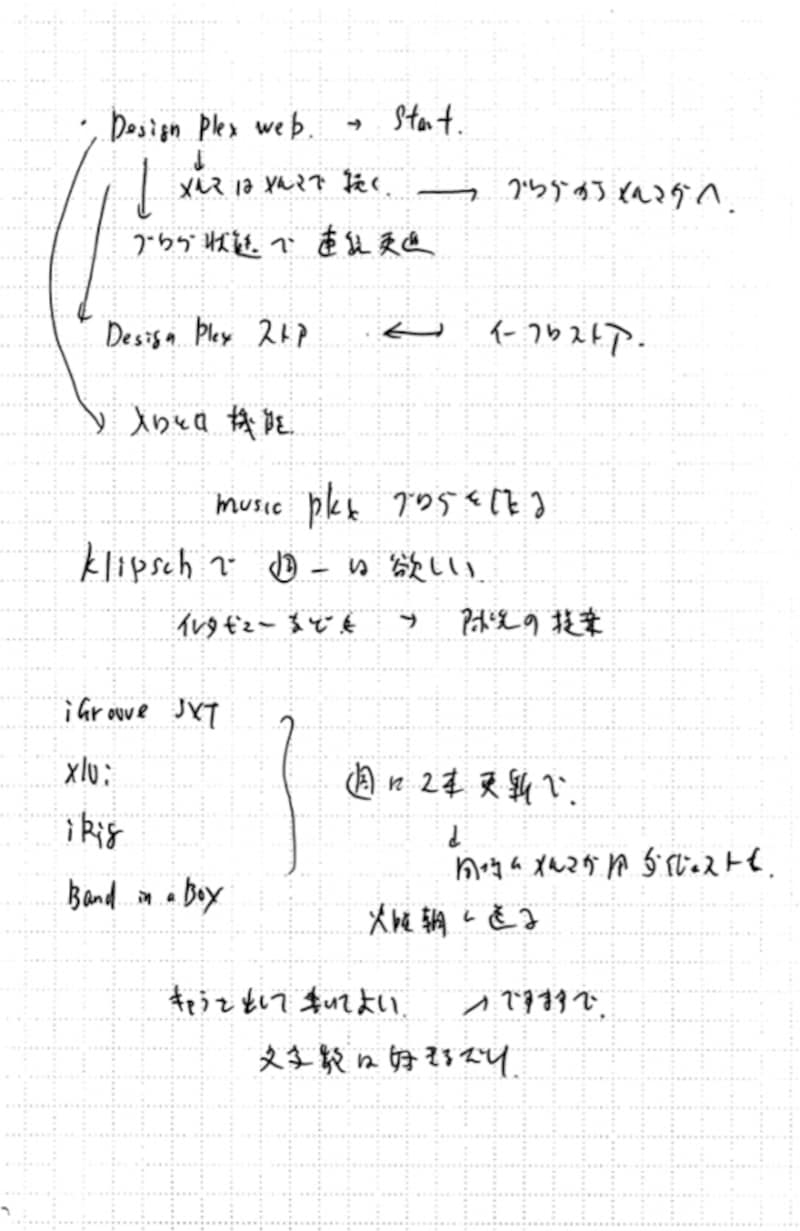 ・Design Plex web. → Start.
↓ メルマはメルマで続く. → ブログからメルマガへ.
ブログ状態で連続更新
Design Plex ストア ←→ イーフロストア.
メロセロ機能
music plex ブログを作る
klipschで 週一は欲しい.
インタビューなども → 販売の提案
iGroove SXT
xlii
iRig
Band in a Box
週に2本更新で.
↓
同時にメルマガ用ダイジェストも.
火曜朝に送る
キャラを出して書いてよい. → ですますで.
文字数は好きなだけ.